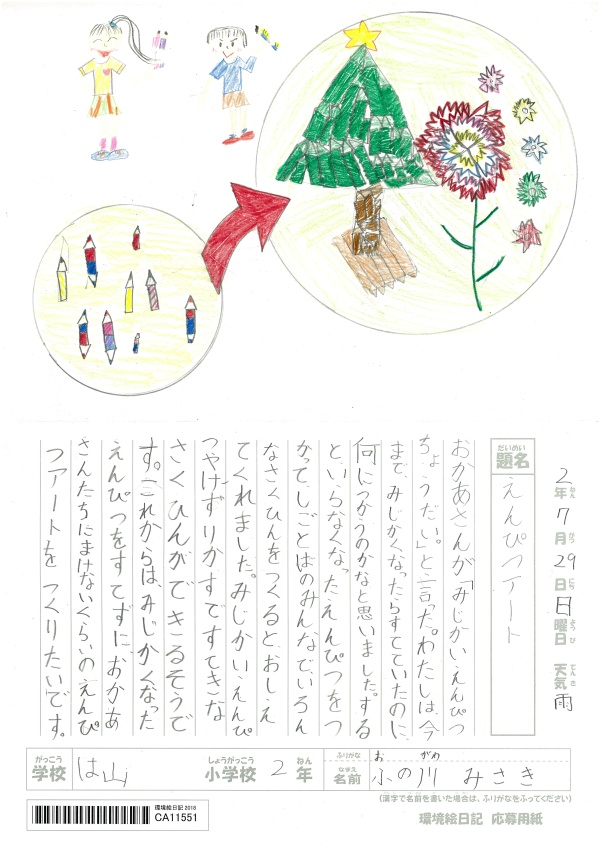 2年7月29日日曜日 天気雨
ねん がつ にち ようび てんき
だいめい
題名 えんぴつアート
おかあさんが「みじかいえんぴつ
ちょうだい。」と言った。わたしは、今
まで、みじかくなったらすてていたのに、
何につかうのかなと思いました。する
と、いらなくなったえんぴつをつ
かって、しごとばのみんなでいろん
なさくひんをつくると、おしえ
てくれました。みじかいえんぴ
つやけずりかすですてきな
さくひんができるそうで
す。これからは、みじかくなった
えんぴつをすてずに、おかあ
さんたちにまけないくらいのえんぴ
つアートを つくりたいです。
がっこう しょうがっこう ねん ふりがな お がわ
学校 は山 小学校 2年 なまえ 名前 小の川 みさき
(漢字で名前を書いた場合は、ふりがなをふってください)
環境絵日記 2018
CA11551
環境絵日記 応募用紙